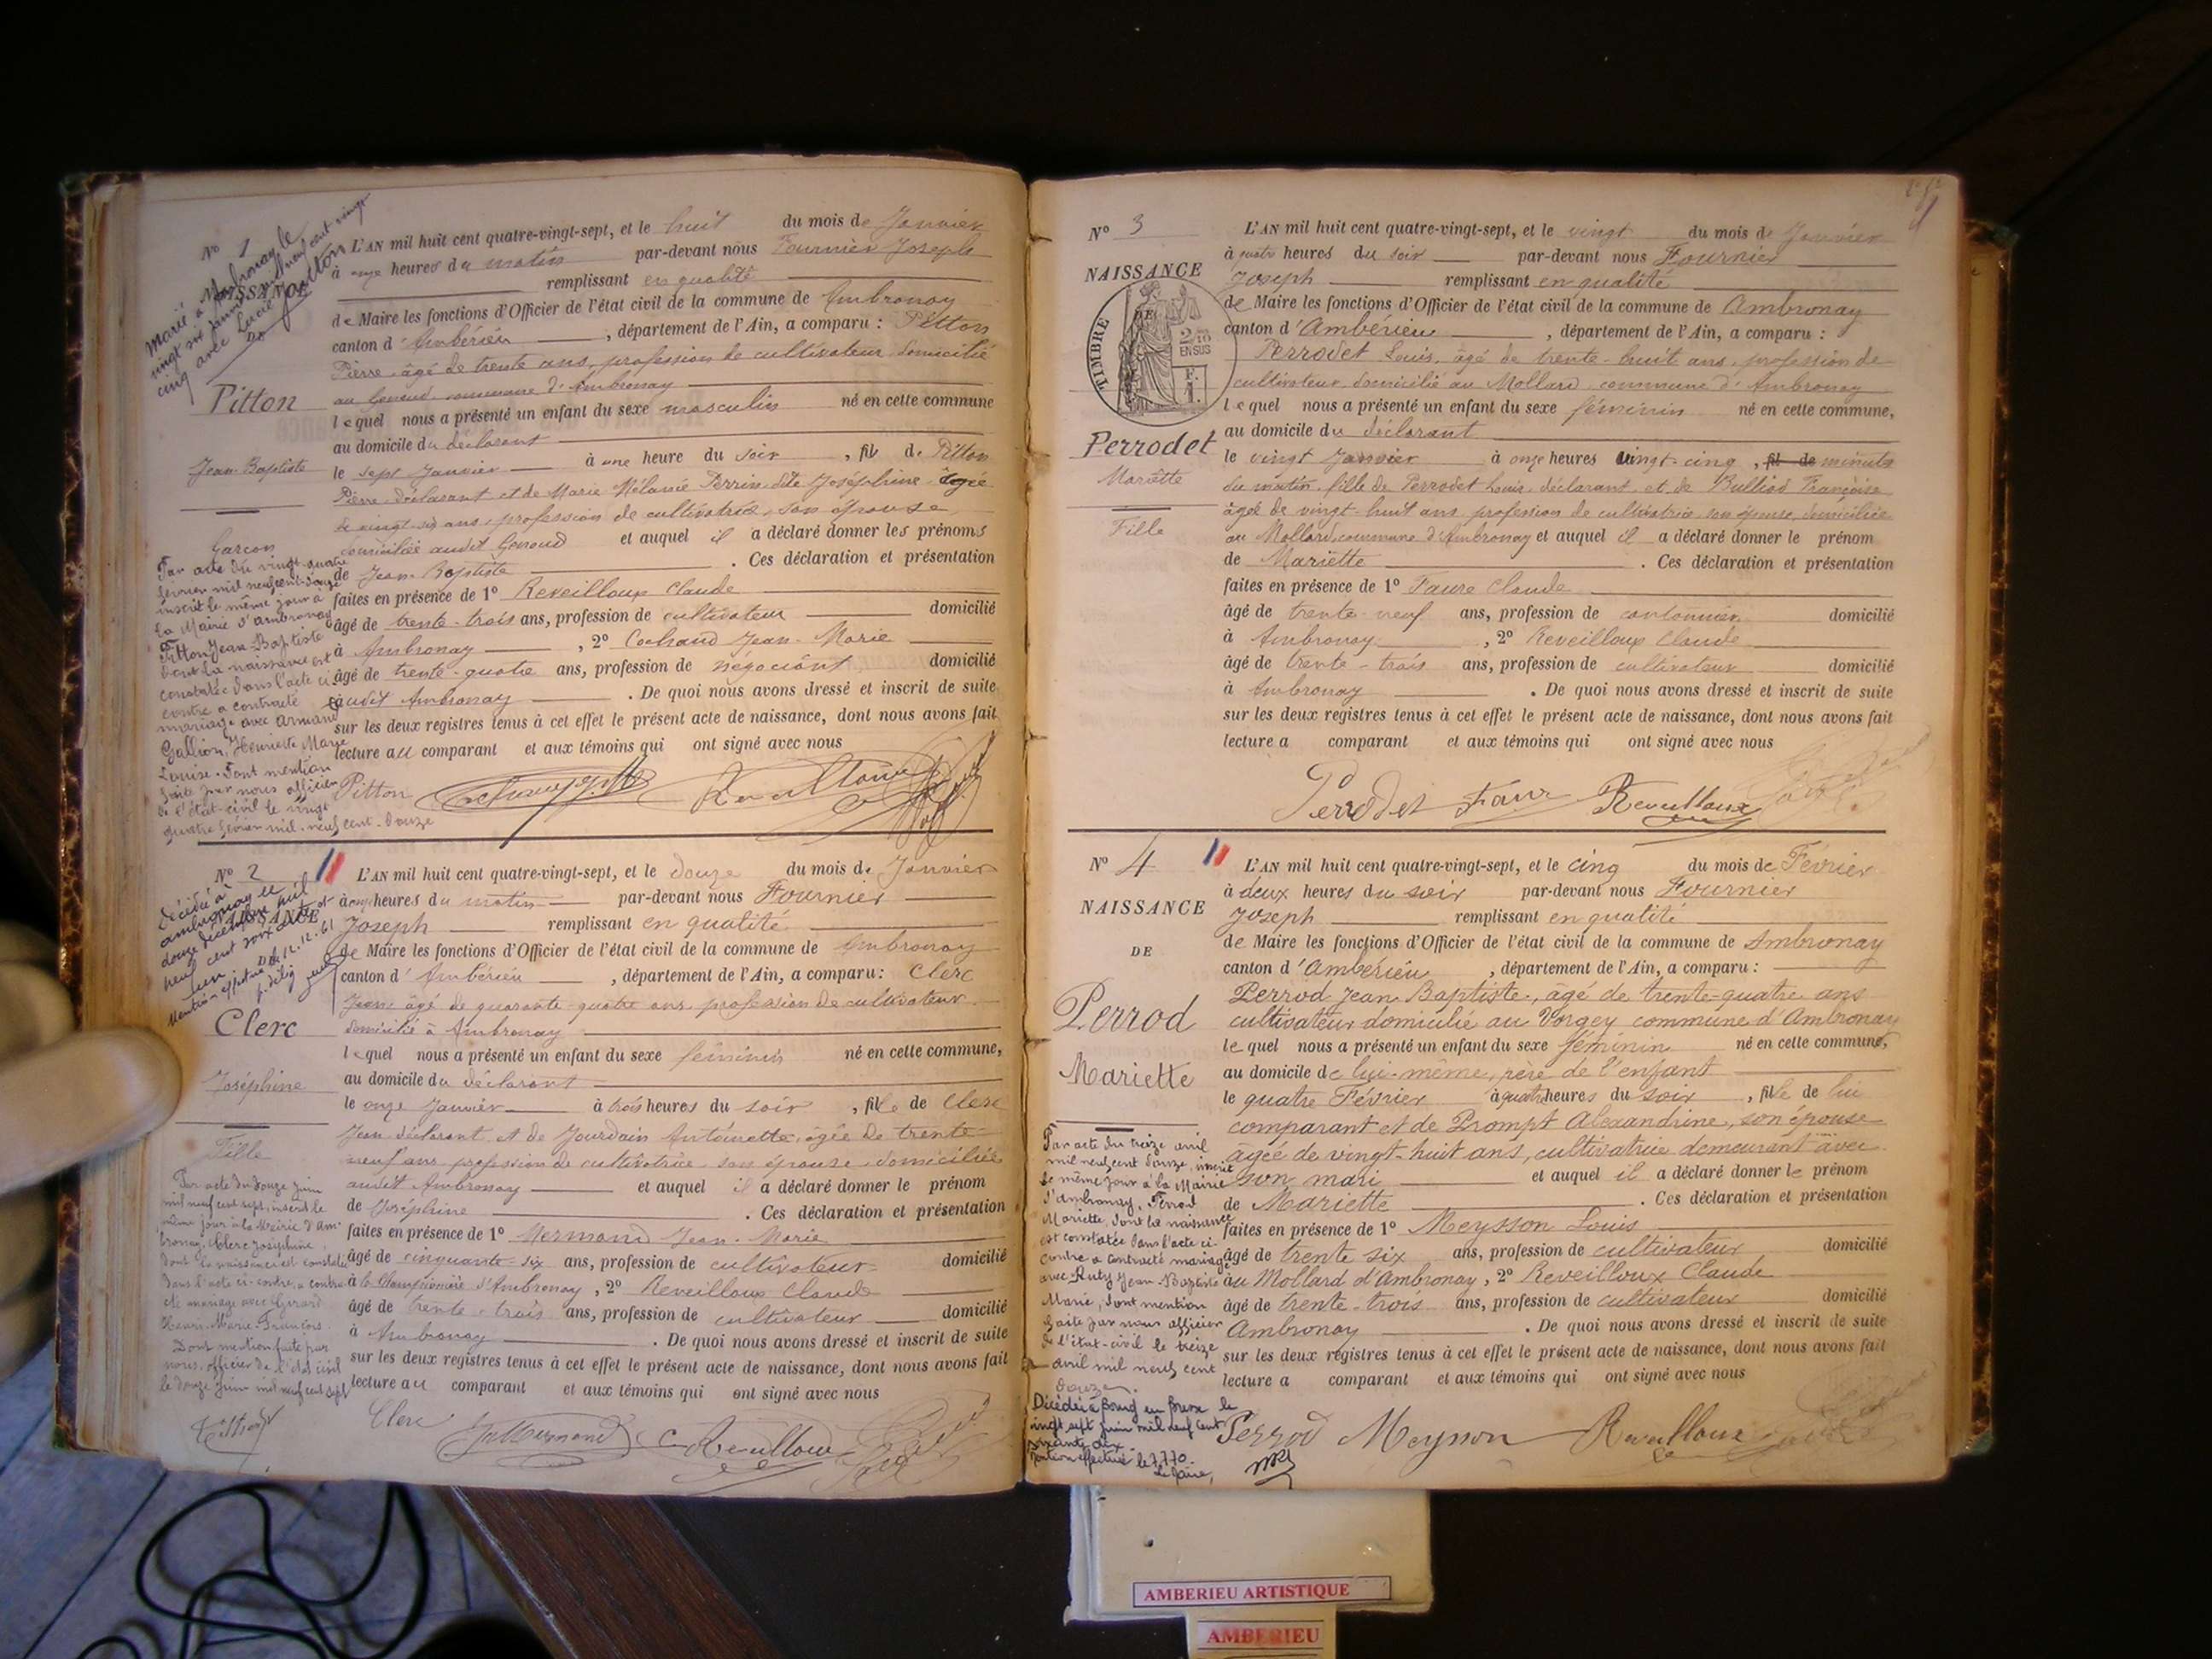 No 1
Marié à Ambronay le
vingt six janvier mil neuf cent vingt
cinq avec Lucie Pantton
Pitton
Jean-Baptiste
Garçon
Par acte du vingt-quatre
février mil neuf cent douze
inscrit le même jour à
la Mairie d'Ambronay
Pitton Jean-Baptiste
dont la naissance est
constatée dans l'acte ci-
contre a contracté
mariage avec Armand
Gallion, Henriette Marie
Louise. Dont mention
faite par nous officier
de l'état-civil le vingt
quatre février mil-neuf cent-douze
L'AN mil huit cent quatre-vingt-sept, et le huit du mois de Janvier
à onze heures du matin par-devant nous Fournier Joseph
remplissant en qualité
de Maire les fonctions d'Officier de l'état civil de la commune de Ambronay
canton d'Ambérieu, département de l'Ain, a comparu : Pitton
Pierre, âgé de trente ans, profession de cultivateur, domicilié
au Genoud commune d'Ambronay
lequel nous a présenté un enfant du sexe masculin né en cette commune
au domicile du déclarant
le sept Janvier à une heure du soir, fils de Pitton
Pierre déclarant et de Marie Mélanie Perrin dite Joséphine âgée
de vingt-six ans, profession de cultivatrice, son épouse,
domiciliée audit Genoud et auquel il a déclaré donner les prénoms
de Jean-Baptiste. Ces déclaration et présentation
faites en présence de 1° Reveilloux Claude
âgé de trente-trois ans, profession de cultivateur domicilié
à Ambronay, 2° Cochand Jean-Marie
âgé de trente-quatre ans, profession de négociant domicilié
audit Ambronay. De quoi nous avons dressé et inscrit de suite
sur les deux registres tenus à cet effet le présent acte de naissance, dont nous avons fait
lecture au comparant et aux témoins qui ont signé avec nous
Pitton Reveilloux
No 2
Décédée à
Ambronay le
douze décembre mil
neuf cent soixante et
un
NAISSANCE
Clerc
Joséphine
Fille
Par acte du douze juin
mil neuf cent sept, inscrit le
même jour à la Mairie d'Am-
bronay, Clerc Joséphine,
dont la naissance est constatée
dans l'acte ci-contre, a contrac-
té mariage avec Girard
Henri-Marie-François.
Dont mention faite par
nous, officier de l'état civil
le douze juin mil neuf cent sept
L'AN mil huit cent quatre-vingt-sept, et le douze du mois de Janvier
à onze heures du matin par-devant nous Fournier
Joseph remplissant en qualité
de Maire les fonctions d'Officier de l'état civil de la commune de Ambronay
canton d'Ambérieu, département de l'Ain, a comparu : Clerc
Jean âgé de quarante-quatre ans, profession de cultivateur
domicilié à Ambronay
lequel nous a présenté un enfant du sexe féminin né en cette commune,
au domicile du déclarant
le onze Janvier à trois heures du soir, fille de Clerc
Jean déclarant et de Jourdain Antoinette, âgée de trente
neuf ans, profession de cultivatrice, son épouse, domiciliée
audit Ambronay et auquel il a déclaré donner le prénom
de Joséphine. Ces déclaration et présentation
faites en présence de 1° Mermand Jean-Marie
âgé de cinquante-six ans, profession de cultivateur domicilié
à la d'Ambronay, 2° Reveilloux Claude
âgé de trente-trois ans, profession de cultivateur domicilié
à Ambronay. De quoi nous avons dressé et inscrit de suite
sur les deux registres tenus à cet effet le présent acte de naissance, dont nous avons fait
lecture au comparant et aux témoins qui ont signé avec nous
Clerc JMMermand C Reveilloux
No 3
NAISSANCE
DE
TIMBRE
EN SUS
Perrodet
Mariette
Fille
L'AN mil huit cent quatre-vingt-sept, et le vingt du mois de Janvier
à quatre heures du soir par-devant nous Fournier
Joseph remplissant en qualité
de Maire les fonctions d'Officier de l'état civil de la commune de Ambronay
canton d'Ambérieu, département de l'Ain, a comparu :
Perrodet Louis, âgé de trente-huit ans, profession de
cultivateur domicilié au Mollard commune d'Ambronay
lequel nous a présenté un enfant du sexe féminin né en cette commune,
au domicile du déclarant
le vingt Janvier à onze heures vingt-cinq, fil de minutes
du matin, fille de Perrodet Louis, déclarant, et de Bulliod Françoise
âgée de vingt-huit ans, profession de cultivatrice son épouse domiciliée
au Mollard commune d'Ambronay et auquel il a déclaré donner le prénom
de Mariette. Ces déclaration et présentation
faites en présence de 1° Faure Claude
âgé de trente-neuf ans, profession de cantonnier domicilié
à Ambronay, 2° Reveilloux Claude
âgé de trente-trois ans, profession de cultivateur domicilié
à Ambronay. De quoi nous avons dressé et inscrit de suite
sur les deux registres tenus à cet effet le présent acte de naissance, dont nous avons fait
lecture a comparant et aux témoins qui ont signé avec nous
Perrodet Faure Reveilloux
No 4
NAISSANCE
DE
Perrod
Mariette
Par acte du treize avril
mil neuf cent douze, inscrit
le même jour à la Mairie
d'Ambronay, Perrod
Mariette, dont la naissance
est constatée dans l'acte ci-
contre a contracté mariage
avec Ruty Jean-Baptiste
Marie, dont mention
faite par nous officier
de l'état-civil le treize
avril mil neuf cent
douze.
Décédée à Bourg en Bresse le
vingt sept juin mil neuf cent
soixante dix.
Mention effectuée le 7.7.70.
Le Maire,
L'AN mil huit cent quatre-vingt-sept, et le cinq du mois de Février
à deux heures du soir par-devant nous Fournier
Joseph remplissant en qualité
de Maire les fonctions d'Officier de l'état civil de la commune de Ambronay
canton d'Ambérieu, département de l'Ain, a comparu :
Perrod Jean Baptiste, âgé de trente-quatre ans
cultivateur domicilié au Vorgey commune d'Ambronay
lequel nous a présenté un enfant du sexe féminin né en cette commune,
au domicile de lui-même, père de l'enfant
le quatre Février à quatre heures du soir, fille de lui
comparant et de Prompt Alexandrine, son épouse
âgée de vingt-huit ans, cultivatrice demeurant avec
son mari et auquel il a déclaré donner le prénom
de Mariette. Ces déclaration et présentation
faites en présence de 1° Meysson Louis
âgé de trente six ans, profession de cultivateur domicilié
au Mollard d'Ambronay, 2° Reveilloux Claude
âgé de trente-trois ans, profession de cultivateur domicilié
Ambronay. De quoi nous avons dressé et inscrit de suite
sur les deux registres tenus à cet effet le présent acte de naissance, dont nous avons fait
lecture a comparant et aux témoins qui ont signé avec nous
Perrod Meysson Reveilloux
AMBERIEU ARTISTIQUE
AMBERIEU